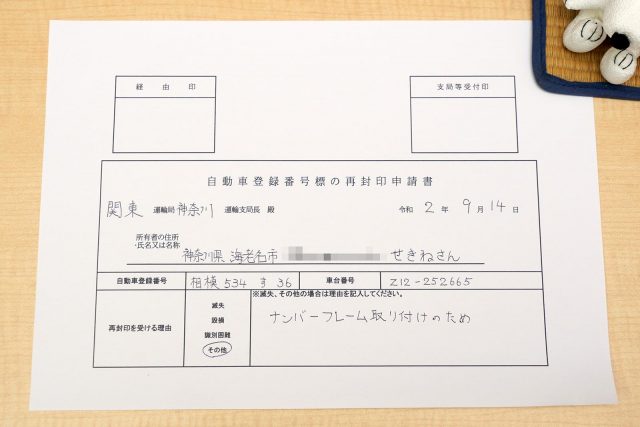 経由印
支局等受付印
自動車登録番号標の再封印申請書
関東 運輸局 神奈川 運輸支局長 殿 令和 2 年 9 月 14 日
所有者の住所
・氏名又は名称
神奈川県 海老名市 せきねさん
自動車登録番号 相模 534 す 36 車台番号 Z12-252665
※滅失、その他の場合は理由を記入してください。
再封印を受ける理由
滅失
毀損
識別困難
その他
ナンバーフレーム取り付けのため